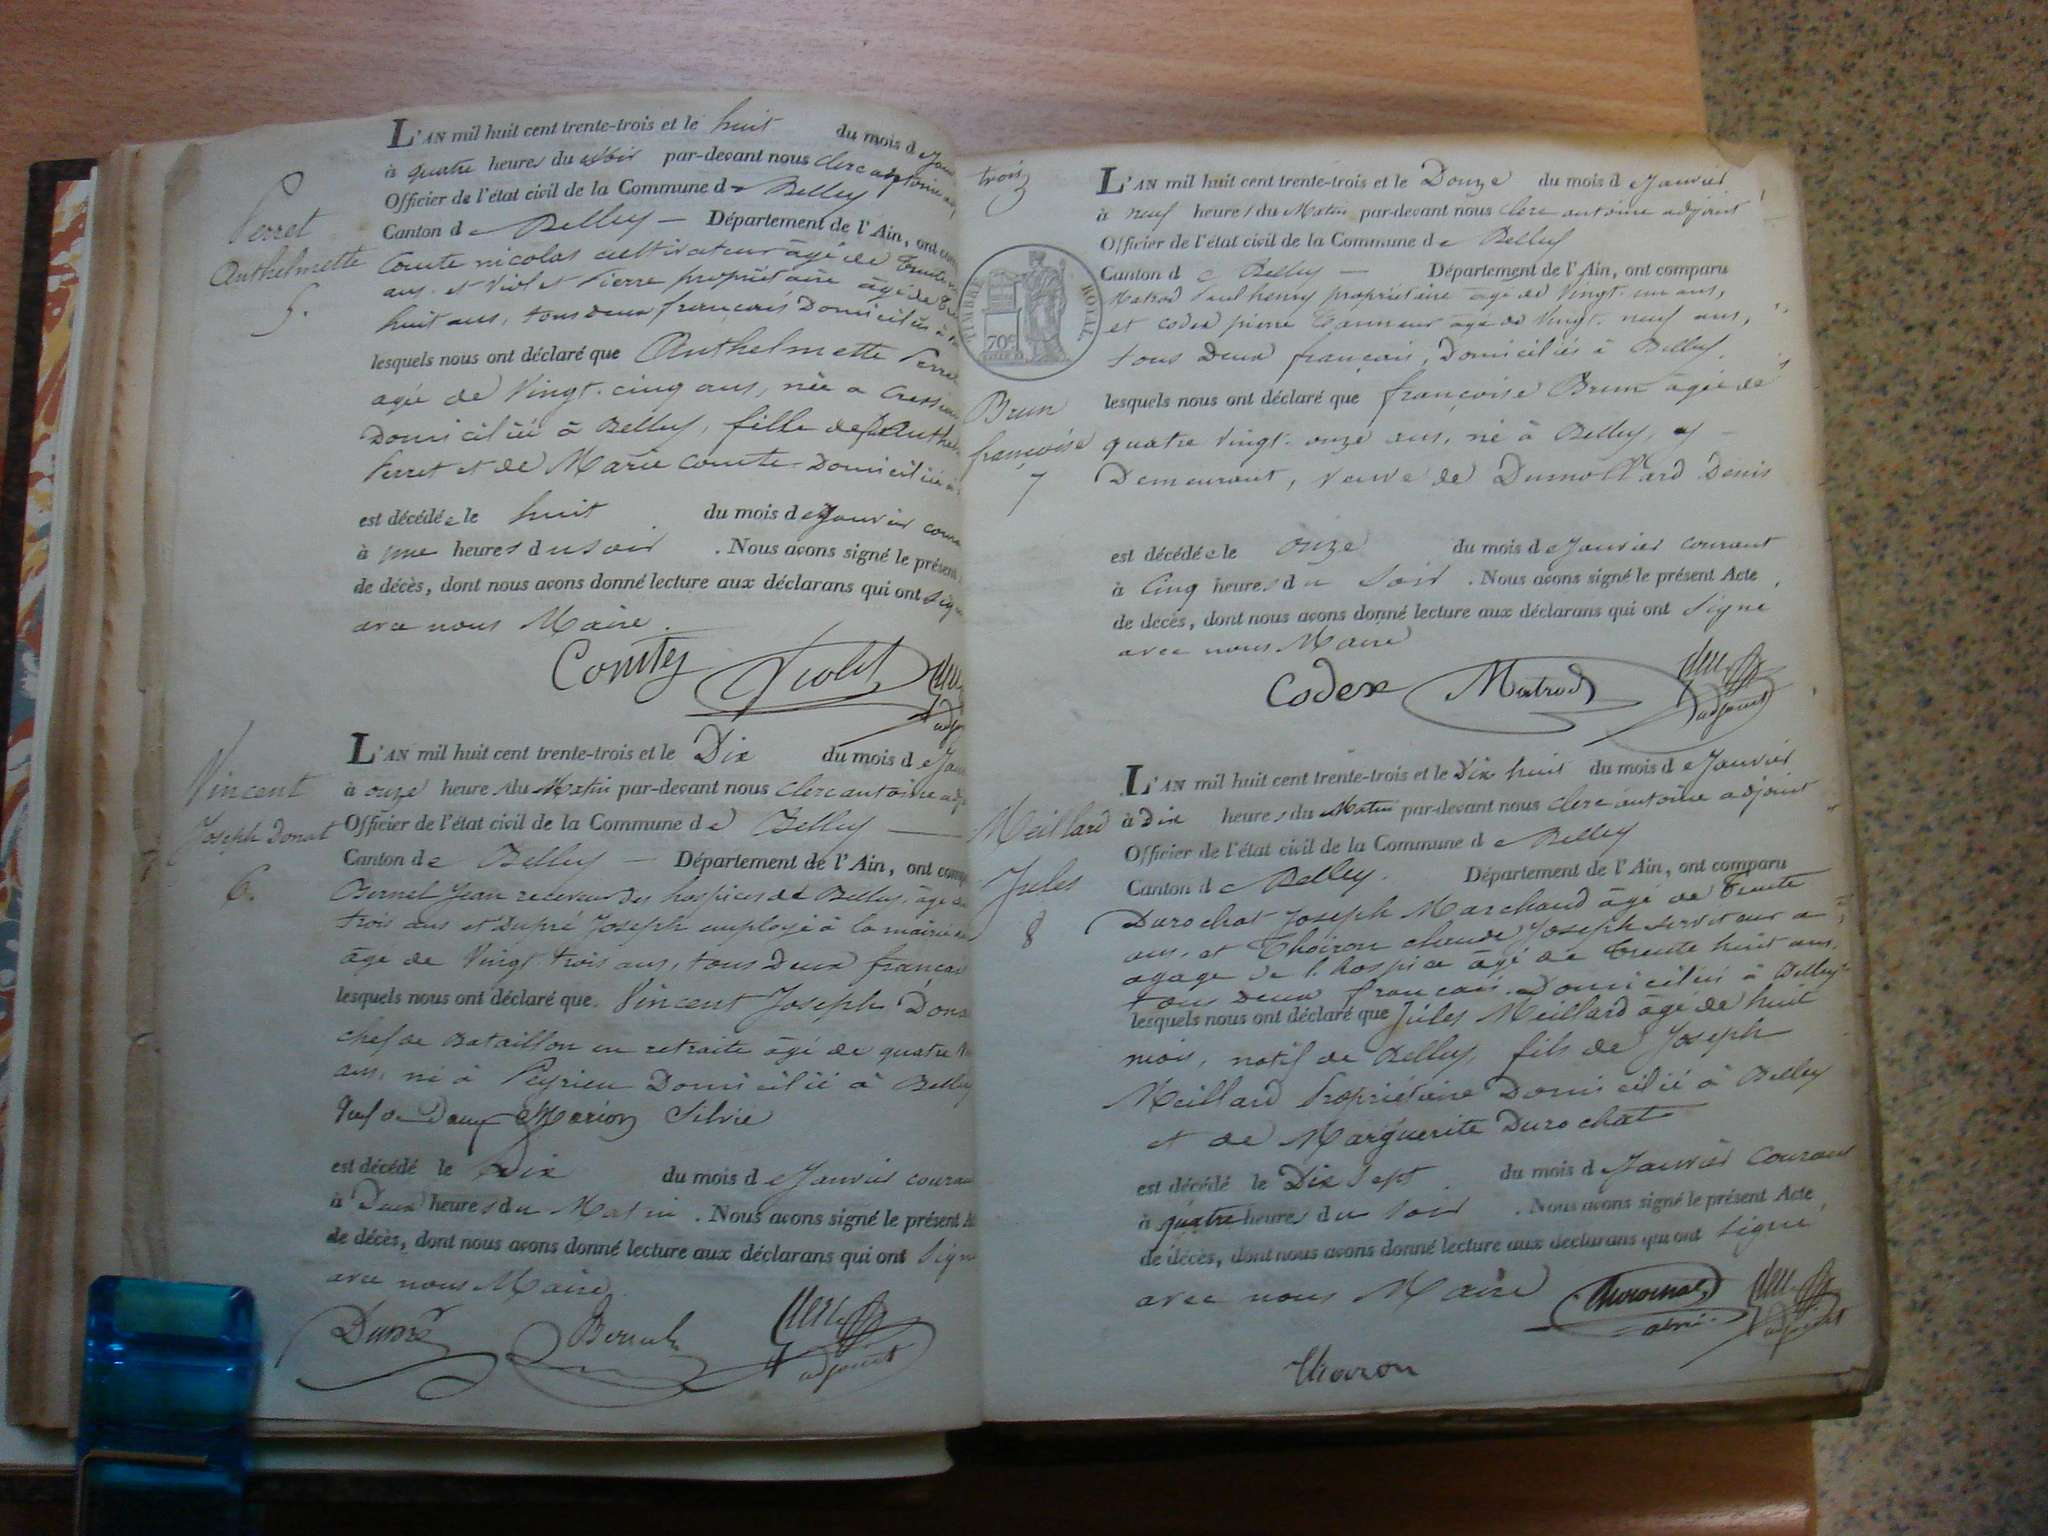 L'AN mil huit cent trente-trois et le huit du mois de Janv
à quatre heures du soir par-devant nous Clerc antoine adj
Officier de l'état civil de la Commune de Belley
Canton de Belley — Département de l'Ain, ont com
Comte nicolas cultivateur âgé de trente
ans et Violet Pierre propriétaire âgé de
huit ans, tous deux français Domiciliés à
lesquels nous ont déclaré que Anthelmette Perret
agée de Vingt-cinq ans, née a
Domiciliée à Belley, fille de Anthel
Perret et de Marie Comte Domiciliée à
est décédée le huit du mois de Janvier coura
à une heures du soir . Nous avons signé le présent
de décès, dont nous avons donné lecture aux déclarans qui ont sig
avec nous Maire.
Perret
Anthelmette
5.
Comte Violet Clerc
adj
L'AN mil huit cent trente-trois et le Dix du mois de Jan
à onze heures du Matin par-devant nous Clerc antoine adj
Officier de l'état civil de la Commune de Belley —
Canton de Belley — Département de l'Ain, ont comp
Bernel Jean receveur des hospices de Belley, âgé de
trois ans et Dupré Joseph employé à la mairie
âgé de Vingt-trois ans, tous deux françai
lesquels nous ont déclaré que Vincent Joseph Dona
chef de Bataillon en retraite âgé de quatre
ans, né à Peyrieu Domicilié à Belley
Veuf de Marion Silvie
est décédé le Dix du mois de Janvier couran
à Deux heures du Matin . Nous avons signé le présent A
de décès, dont nous avons donné lecture aux déclarans qui ont Sign
avec nous Maire.
Vincent
Joseph Donat
6.
Dupré Clerc
adjoint
trois
TIMBRE ROYAL
70c
L'AN mil huit cent trente-trois et le Douze du mois de Janvier
à neuf heures du Matin par-devant nous Clerc antoine adjoint
Officier de l'état civil de la Commune de Belley
Canton de Belley — Département de l'Ain, ont comparu
Matrod Paul henry propriétaire âgé de Vingt-un ans,
et codex pierre Tanneur agé de Vingt-neuf ans,
tous Deux français, Domiciliés à Belley.
lesquels nous ont déclaré que françoise Brun âgée de
quatre Vingt-onze ans, né à Belley, y
Demeurant, veuve de Dumollard Denis
est décédée le onze du mois de Janvier courant
à Cinq heures du Soir . Nous avons signé le présent Acte
de décès, dont nous avons donné lecture aux déclarans qui ont Signé
avec nous Maire
Brun
françoise
7
Codex Matrod Clerc
adjoint
L'AN mil huit cent trente-trois et le Dix huit du mois de Janvier
à Dix heures du Matin par-devant nous Clerc antoine adjoint
Officier de l'état civil de la Commune de Belley
Canton de Belley. Département de l'Ain, ont comparu
Durochat Joseph Marchand âgé de Trente
ans, et Thoiron claude Joseph serviteur a
gage de l'hospice âgé de trente huit ans,
tous deux français Domiciliés à Belley
lesquels nous ont déclaré que Jules Meillard âgé de huit
mois, natif de Belley, fils de Joseph
Meillard Propriétaire Domicilié à Belley
et de Marguerite Durochat
est décédé le Dix Sept du mois de Janvier courant
à quatre heures du Soir . Nous avons signé le présent Acte
de décès, dont nous avons donné lecture aux déclarans qui ont Signé
avec nous Maire
Meillard
Jules
8
Clerc
adjoint
Thoiron